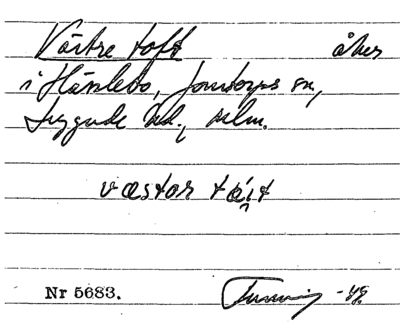 Västre toft åker
i Hässlebo, Jonstorps sn,
Luggude hd., Mlm.
væstar tåit
Nr 5683.
-49